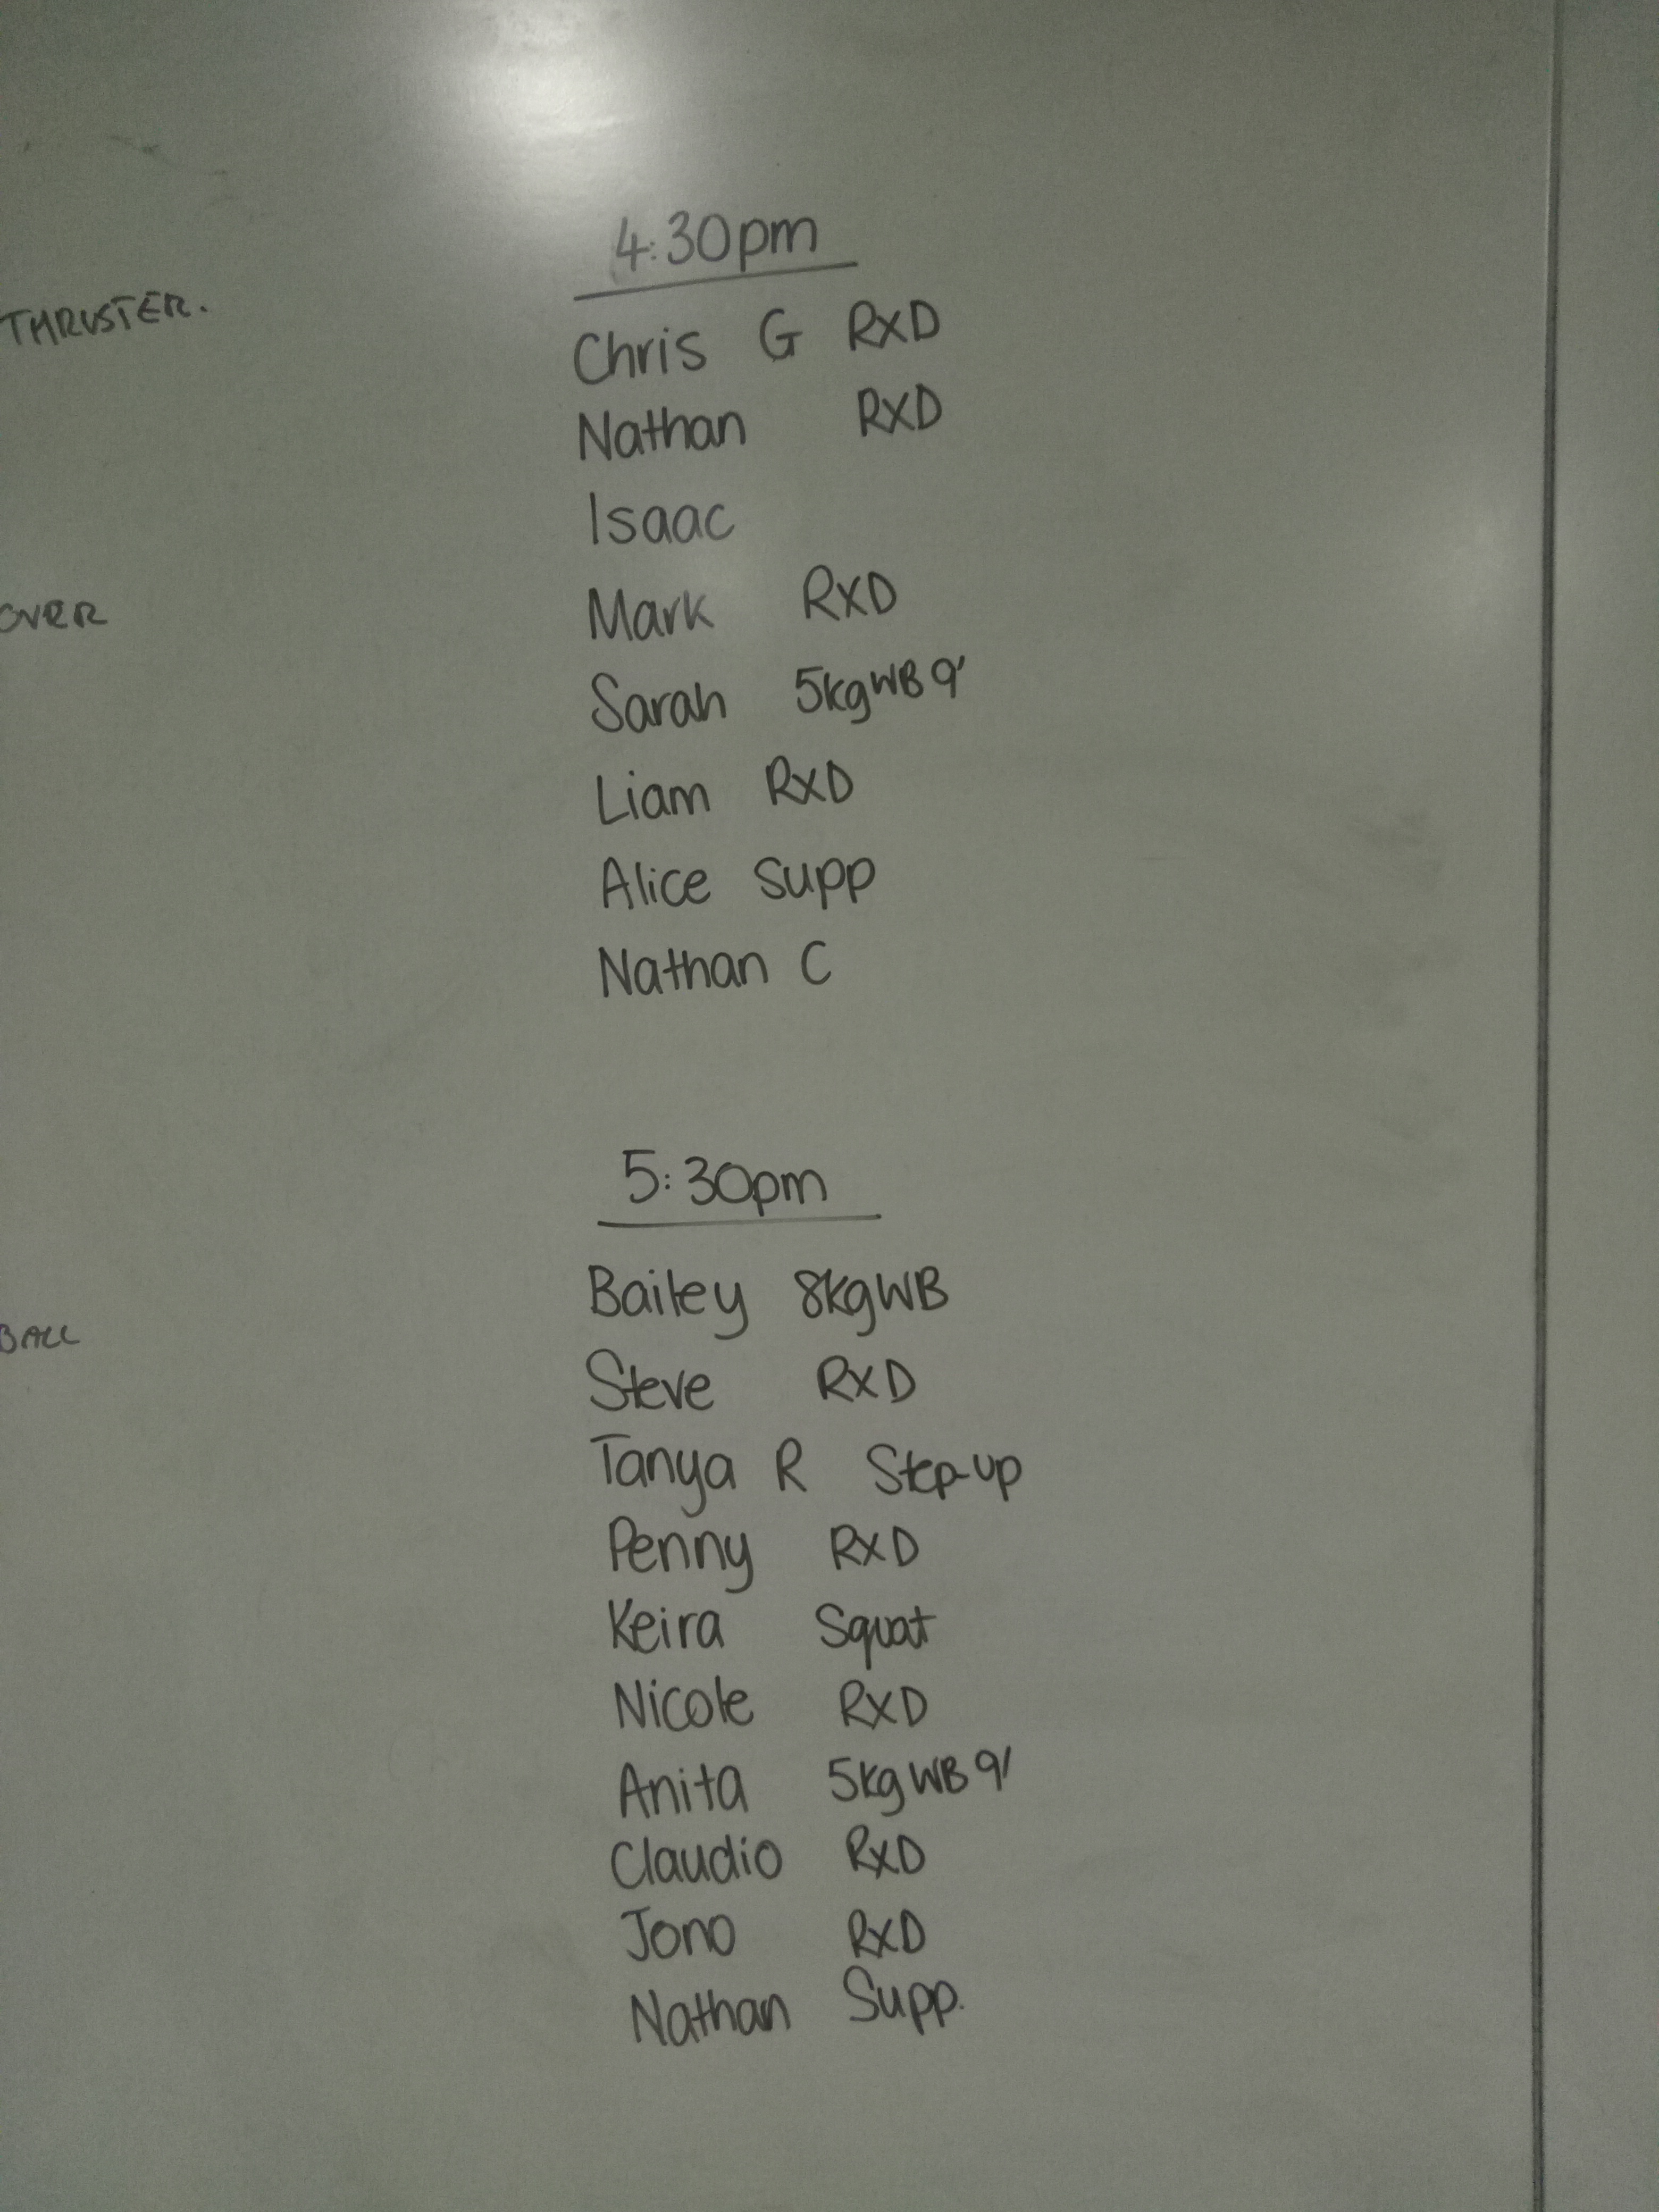 4:30pm
THRUSTER.
Chris G RXD
Nathan RXD
Isaac
OVER
Mark RXD
Sarah 5kgWB 9'
Liam RXD
Alice Supp
Nathan C
5:30pm
Bailey 8kgWB
BALL
Steve RXD
Tanya R Step-up
Penny RXD
Keira Squat
Nicole RXD
Anita 5kg WB 9'
Claudio RXD
Jono RXD
Nathan Supp.